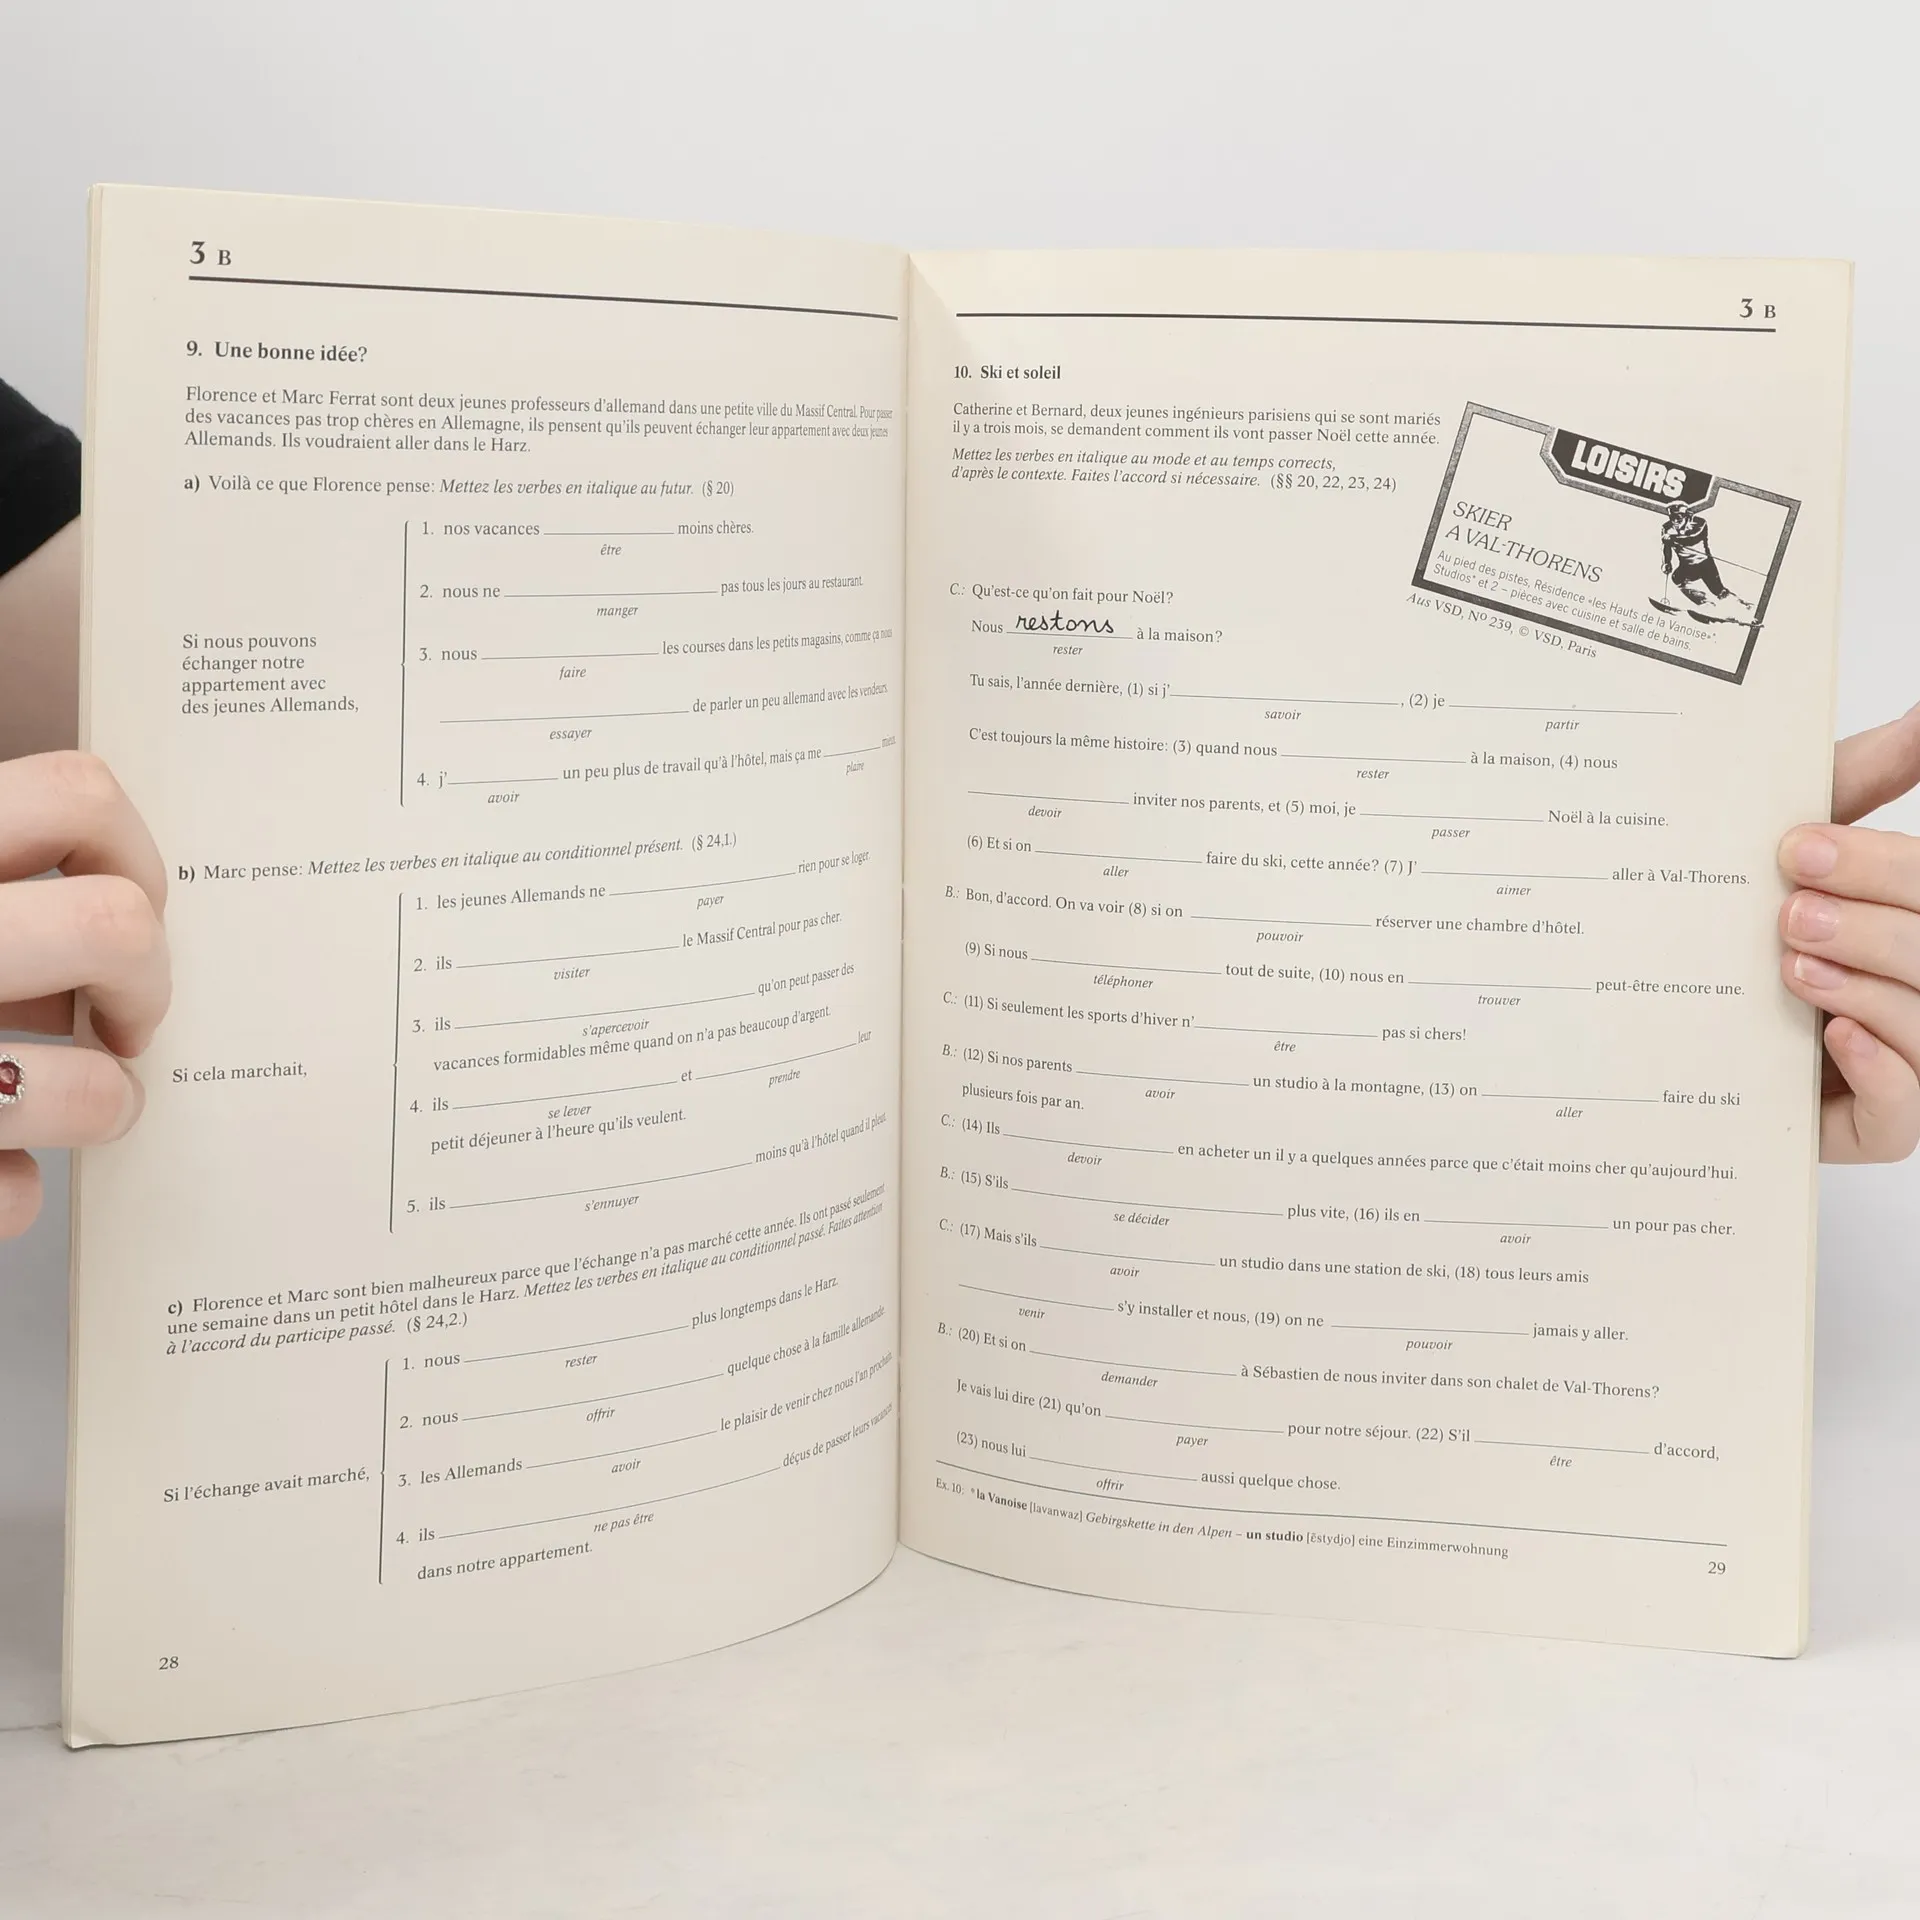 3 B
9. Une bonne idée?
Florence et Marc Ferrat sont deux jeunes professeurs d'allemand dans une petite ville du Massif Central. Pour passer
des vacances pas trop chères en Allemagne, ils pensent qu'ils peuvent échanger leur appartement avec deux jeunes
Allemands. Ils voudraient aller dans le Harz.
a) Voilà ce que Florence pense: Mettez les verbes en italique au futur. (§ 20)
Si nous pouvons
échanger notre
appartement avec
des jeunes Allemands,
1. nos vacances ____ moins chères.
être
2. nous ne ____ pas tous les jours au restaurant.
manger
3. nous ____ les courses dans les petits magasins, comme ça nous
faire
____ de parler un peu allemand avec les vendeurs.
essayer
4. j'____ un peu plus de travail qu'à l'hôtel, mais ça me ____ mieux.
avoir plaire
b) Marc pense: Mettez les verbes en italique au conditionnel présent. (§ 24,1.)
Si cela marchait,
1. les jeunes Allemands ne ____ rien pour se loger.
payer
2. ils ____ le Massif Central pour pas cher.
visiter
3. ils ____ qu'on peut passer des
s'apercevoir
vacances formidables même quand on n'a pas beaucoup d'argent.
4. ils ____ et ____ leur
se lever prendre
petit déjeuner à l'heure qu'ils veulent.
5. ils ____ moins qu'à l'hôtel quand il pleut.
s'ennuyer
c) Florence et Marc sont bien malheureux parce que l'échange n'a pas marché cette année. Ils ont passé seulement
une semaine dans un petit hôtel dans le Harz. Mettez les verbes en italique au conditionnel passé. Faites attention
à l'accord du participe passé. (§ 24,2.)
Si l'échange avait marché,
1. nous ____ plus longtemps dans le Harz.
rester
2. nous ____ quelque chose à la famille allemande.
offrir
3. les Allemands ____ le plaisir de venir chez nous l'an prochain.
avoir
4. ils ____ déçus de passer leurs vacances
ne pas être
dans notre appartement.
28
3 B
10. Ski et soleil
Catherine et Bernard, deux jeunes ingénieurs parisiens qui se sont mariés
il y a trois mois, se demandent comment ils vont passer Noël cette année.
Mettez les verbes en italique au mode et au temps corrects,
d'après le contexte. Faites l'accord si nécessaire. (§§ 20, 22, 23, 24)
LOISIRS
SKIER
A VAL-THORENS
Au pied des pistes, Résidence «les Hauts de la Vanoise»°.
Studios° et 2 – pièces avec cuisine et salle de bains.
Aus VSD, Nº 239, © VSD, Paris
C.: Qu'est-ce qu'on fait pour Noël?
Nous restons à la maison?
rester
Tu sais, l'année dernière, (1) si j'____, (2) je ____.
savoir partir
C'est toujours la même histoire: (3) quand nous ____ à la maison, (4) nous
rester
____ inviter nos parents, et (5) moi, je ____ Noël à la cuisine.
devoir passer
(6) Et si on ____ faire du ski, cette année? (7) J'____ aller à Val-Thorens.
aller aimer
B.: Bon, d'accord. On va voir (8) si on ____ réserver une chambre d'hôtel.
pouvoir
(9) Si nous ____ tout de suite, (10) nous en ____ peut-être encore une.
téléphoner trouver
C.: (11) Si seulement les sports d'hiver n'____ pas si chers!
être
B.: (12) Si nos parents ____ un studio à la montagne, (13) on ____ faire du ski
avoir aller
plusieurs fois par an.
C.: (14) Ils ____ en acheter un il y a quelques années parce que c'était moins cher qu'aujourd'hui.
devoir
B.: (15) S'ils ____ plus vite, (16) ils en ____ un pour pas cher.
se décider avoir
C.: (17) Mais s'ils ____ un studio dans une station de ski, (18) tous leurs amis
avoir
____ s'y installer et nous, (19) on ne ____ jamais y aller.
venir pouvoir
B.: (20) Et si on ____ à Sébastien de nous inviter dans son chalet de Val-Thorens?
demander
Je vais lui dire (21) qu'on ____ pour notre séjour. (22) S'il ____ d'accord,
payer être
(23) nous lui ____ aussi quelque chose.
offrir
Ex. 10: °la Vanoise [lavanwaz] Gebirgskette in den Alpen – un studio [ɛ̃stydjo] eine Einzimmerwohnung
29